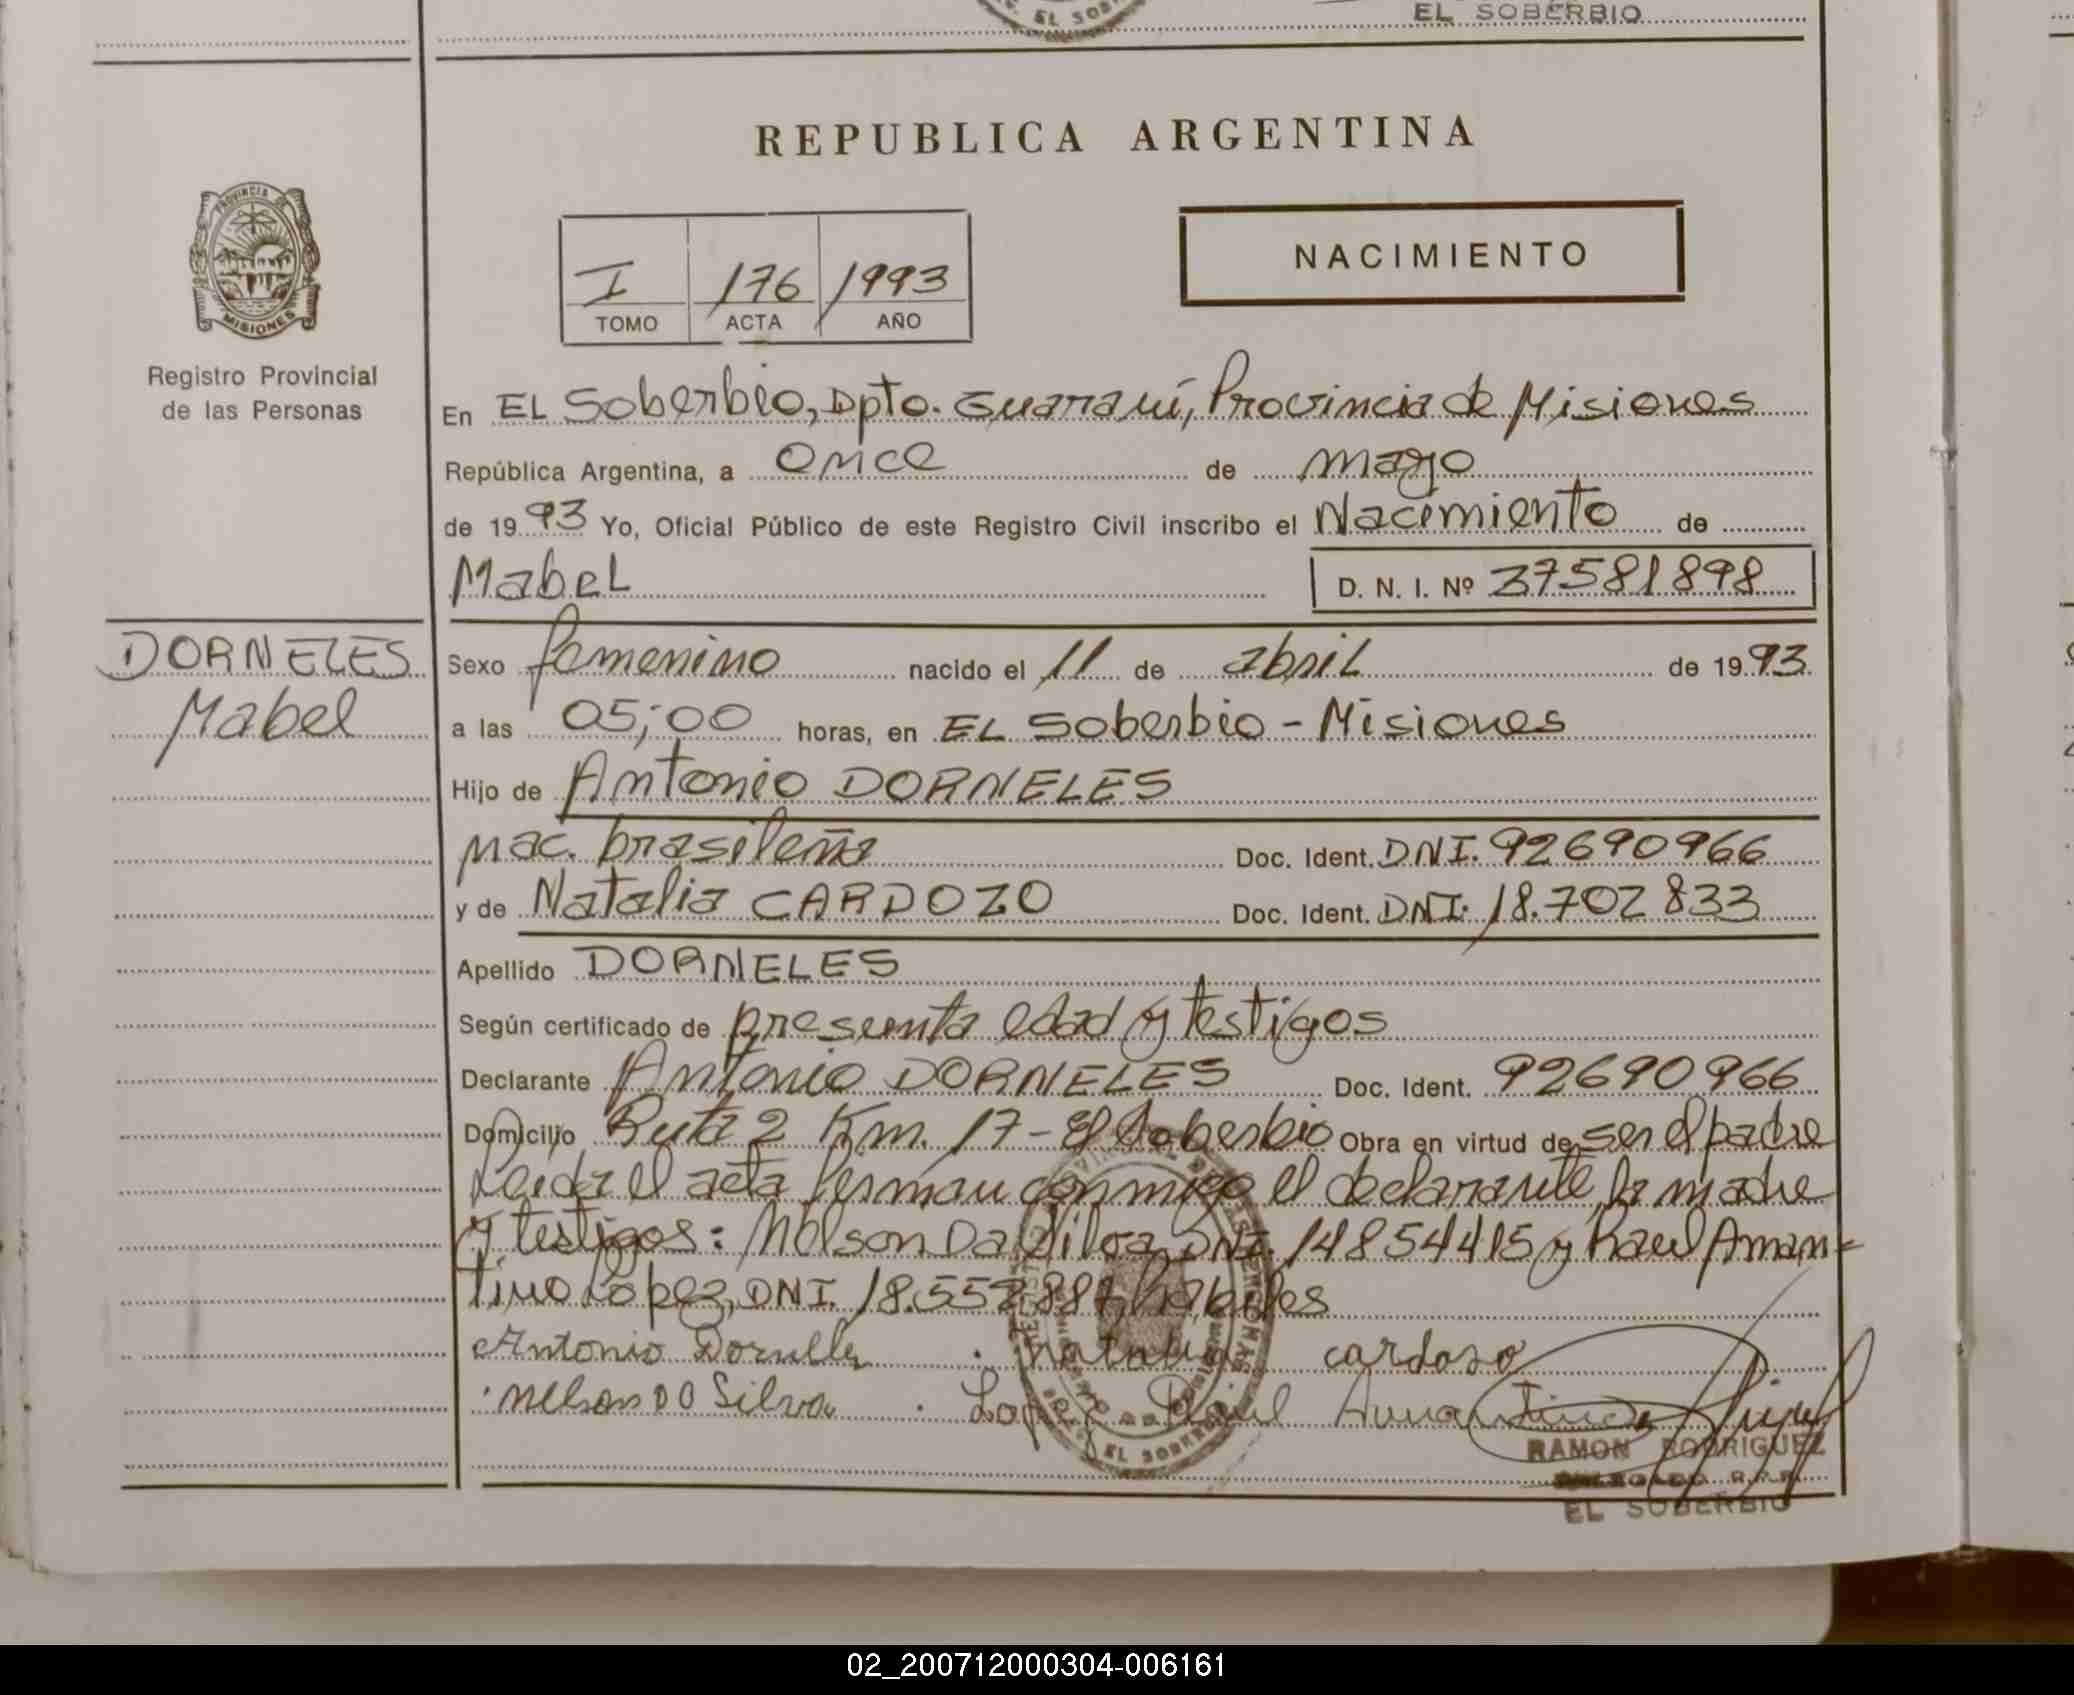 EL SOBERBIO
EL SOBERBIO
REPUBLICA ARGENTINA
PROVINCIA DE
MISIONES
Registro Provincial
de las Personas
I 176 1993
TOMO ACTA AÑO
NACIMIENTO
En EL Soberbio, Dpto. Guaraní, Provincia de Misiones
República Argentina, a Once de mayo
de 1993 Yo, Oficial Público de este Registro Civil inscribo el Nacimiento de
Mabel
D. N. I. Nº 37581898
DORNELES
Mabel
Sexo femenino nacido el 11 de abril de 1993
a las 05;00 horas, en EL Soberbio - Misiones
Hijo de Antonio DORNELES
nac. brasileña Doc. Ident. DNI. 92690966
y de Natalia CARDOZO Doc. Ident. DNI. 18.702833
Apellido DORNELES
Según certificado de presunta edad y testigos
Declarante Antonio DORNELES Doc. Ident. 92690966
Domicilio Ruta 2 Km. 17 - El Soberbio Obra en virtud de ser el padre
Leida el acta firman conmigo el declarante, la madre
y testigos: Nelson Da Silva, DNI. 14854415 y Raul Aman-
tino Lopez, DNI. 18.558887, habiles
Antonio Dornelles Natalia cardozo
Nelson DO Silva Lopez Raul Amantino
RAMON RODRIGUEZ
DELEGADO R.P.P.
EL SOBERBIO
02_200712000304-006161